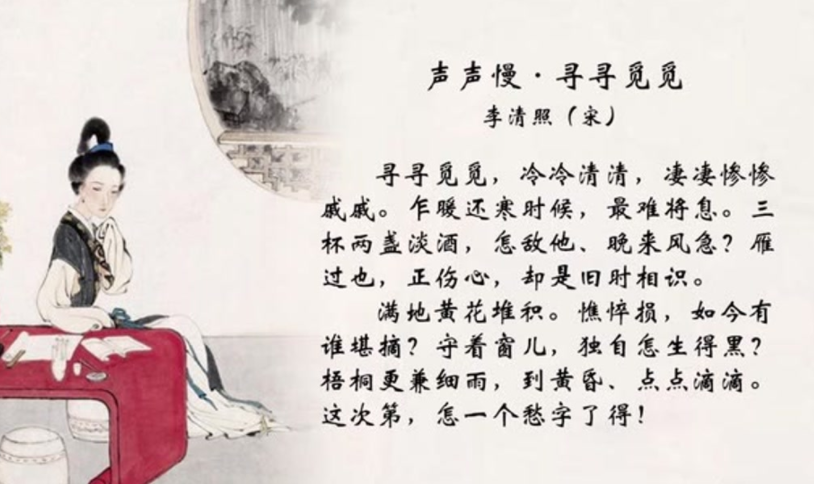 声声慢·寻寻觅觅
李清照（宋）
寻寻觅觅，冷冷清清，凄凄惨惨
戚戚。乍暖还寒时候，最难将息。三
杯两盏淡酒，怎敌他、晚来风急？雁
过也，正伤心，却是旧时相识。
满地黄花堆积。憔悴损，如今有
谁堪摘？守着窗儿，独自怎生得黑？
梧桐更兼细雨，到黄昏、点点滴滴。
这次第，怎一个愁字了得！